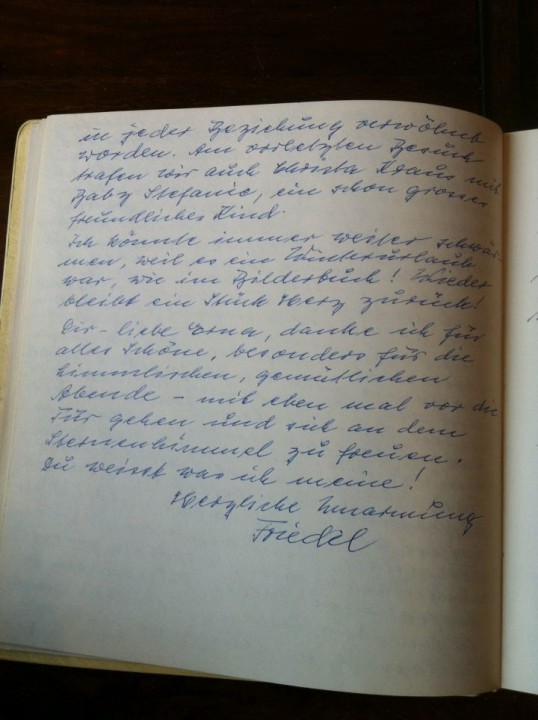 in jeder Beziehung verwöhnt
worden. Am vorletzten Besuch
trafen wir auch Christa Klaus mit
Baby Stefanie, ein schon grosses
freundliches Kind.
Ich könnte immer weiter schwär-
men, weil es ein Winterurlaub
war, wie im Bilderbuch! Wieder
bleibt ein Stück Herz zurück!
Dir - liebe Erna, danke ich für
alles Schöne, besonders für die
himmlischen, gemütlichen
Abende - mit eben mal vor die
Tür gehen und sich an dem
Sternenhimmel zu freuen.
Du weisst was ich meine!
Herzliche Umarmung
Friedel